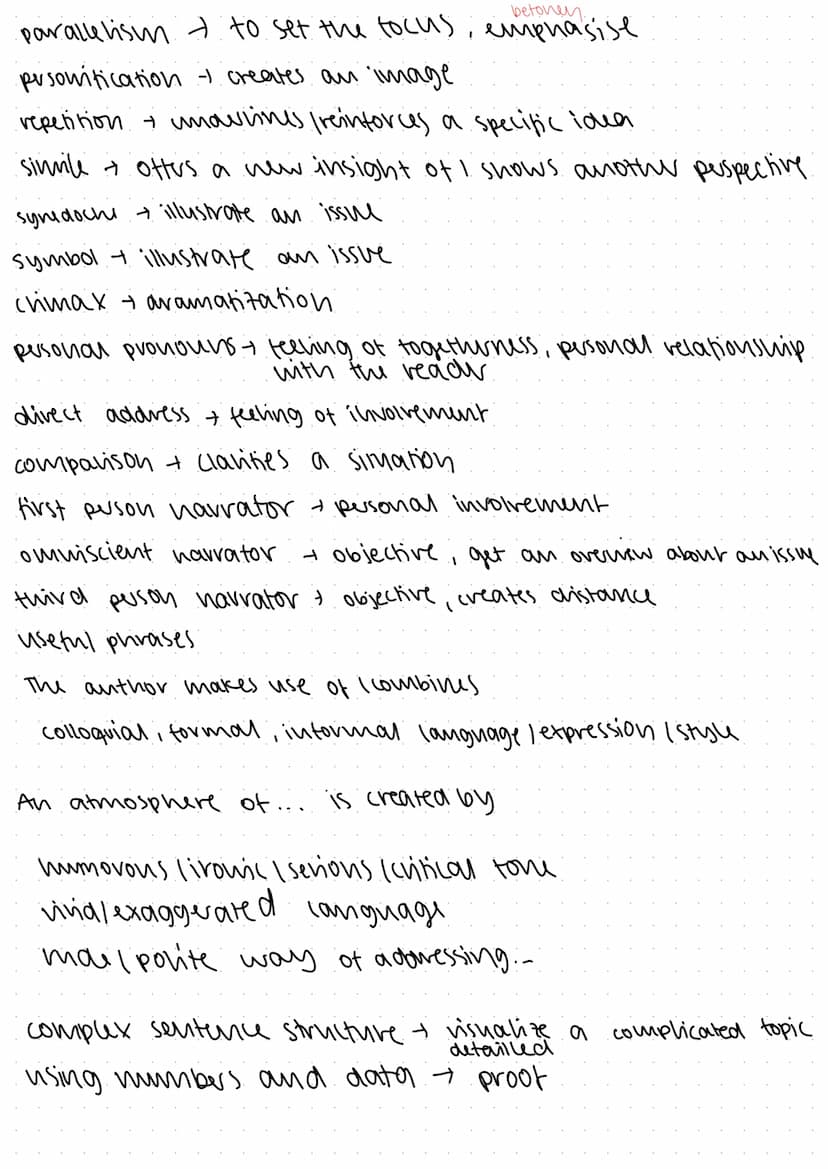 betonen
parallelism → to set the focus, emphasise
personification → creates an image
repetition → underlines/reinforces a specific idea
simile → offers a new insight of / shows another perspective
synedoche → illustrate an issue
symbol → illustrate an issue
climax → dramatization
personal pronouns → feeling of togetherness, personal relationship
with the reader
direct address → feeling of involvement
comparison → clarifies a situation
first person narrator → personal involvement
omniscient narrator → objective, get an overview about an issue
third person narrator → objective, creates distance
useful phrases
The author makes use of / combines
colloquial, formal, informal language / expression / style
An atmosphere of... is created by
humorous / ironic / serious / critical tone
vivid/exaggerated language
rude / polite way of addressing...
complex sentence structure → visualize a complicated topic
detailled
using numbers and data → proof